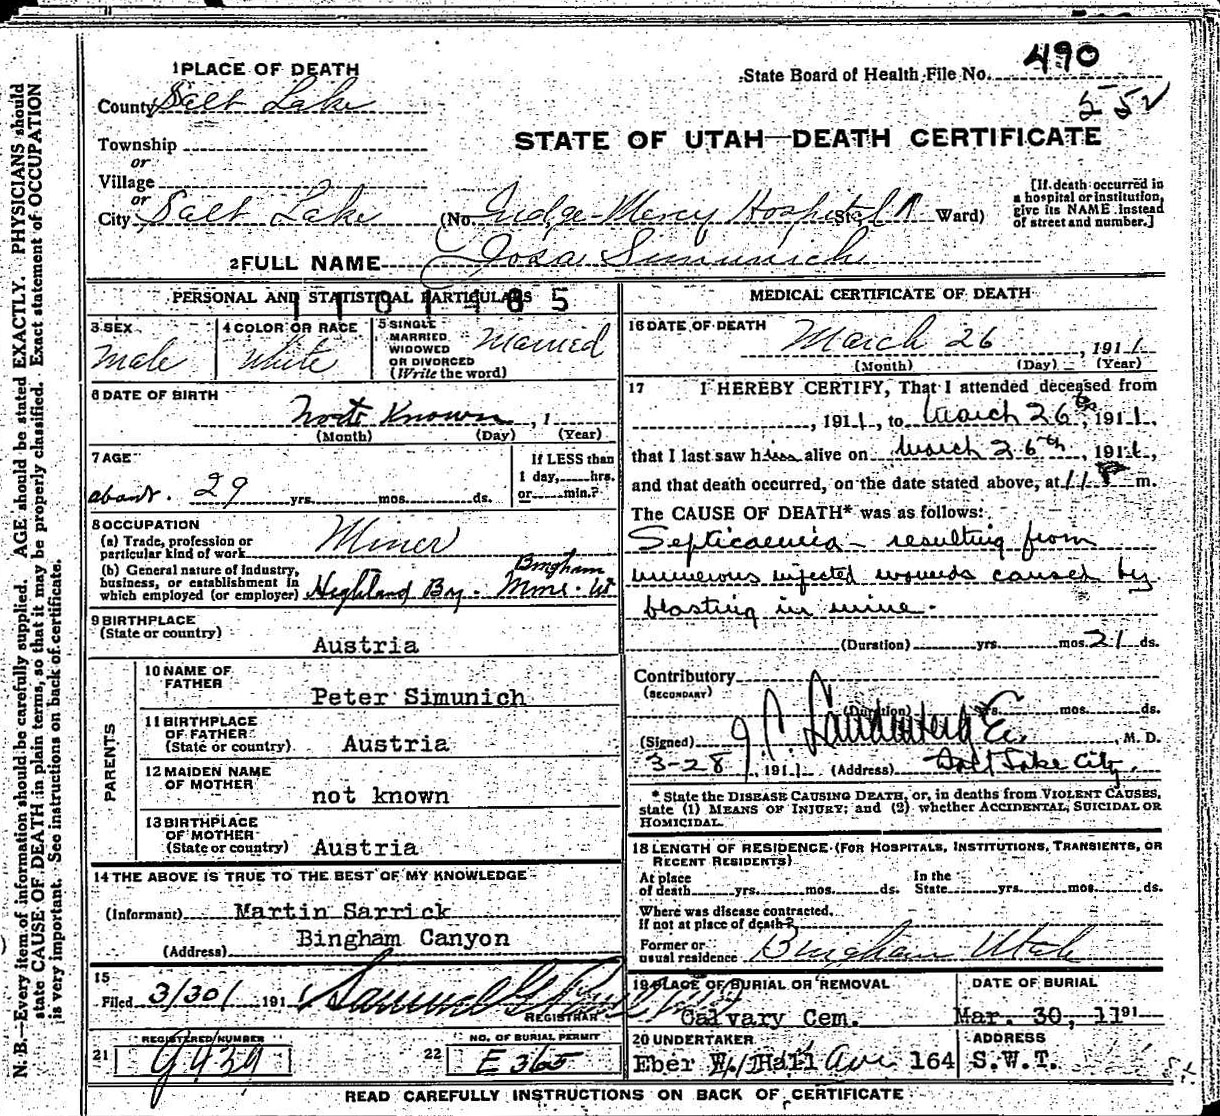 490
1 PLACE OF DEATH
State Board of Health File No.
552
County Salt Lake
STATE OF UTAH—DEATH CERTIFICATE
Township
or
Village
or
City Salt Lake (No. Judge Mercy Hospital St. Ward)
[If death occurred in a hospital or institution, give its NAME instead of street and number.]
2 FULL NAME Josa Simunich
PERSONAL AND STATISTICAL PARTICULARS
3 SEX
Male
4 COLOR OR RACE
White
5 SINGLE MARRIED WIDOWED OR DIVORCED (Write the word)
Married
6 DATE OF BIRTH
Not Known, 1
(Month) (Day) (Year)
7 AGE
about 29 yrs. mos. ds.
If LESS than 1 day, hrs. or min.?
8 OCCUPATION
(a) Trade, profession or particular kind of work Miner
(b) General nature of Industry, business, or establishment in which employed (or employer) Highland Boy. Bingham Mine. Ut
9 BIRTHPLACE
(State or country) Austria
PARENTS
10 NAME OF FATHER Peter Simunich
11 BIRTHPLACE OF FATHER (State or country) Austria
12 MAIDEN NAME OF MOTHER not known
13 BIRTHPLACE OF MOTHER (State or country) Austria
14 THE ABOVE IS TRUE TO THE BEST OF MY KNOWLEDGE
(Informant) Martin Sarrick
(Address) Bingham Canyon
15
Filed 3/30/ 191 Samuel G
REGISTRAR
21 REGISTERED NUMBER 9439
22 NO. OF BURIAL PERMIT E 365
MEDICAL CERTIFICATE OF DEATH
16 DATE OF DEATH
March 26, 1911
(Month) (Day) (Year)
17 I HEREBY CERTIFY, That I attended deceased from
, 1911, to March 26th, 1911,
that I last saw h alive on March 26th, 1911,
and that death occurred, on the date stated above, at 11 P m.
The CAUSE OF DEATH* was as follows:
Septicaemia - resulting from
numerous infected wounds caused by
blasting in mine.
(Duration) yrs. mos. 21 ds.
Contributory
(SECONDARY)
(Duration) yrs. mos. ds.
(Signed) , M. D.
3-28, 1911 (Address) Salt Lake City.
* State the DISEASE CAUSING DEATH, or, in deaths from VIOLENT CAUSES,
state (1) MEANS OF INJURY; and (2) whether ACCIDENTAL, SUICIDAL OR
HOMICIDAL.
18 LENGTH OF RESIDENCE (FOR HOSPITALS, INSTITUTIONS, TRANSIENTS, OR
RECENT RESIDENTS)
At place of death yrs. mos. ds. In the State yrs. mos. ds.
Where was disease contracted, if not at place of death?
Former or usual residence Bingham Utah
19 PLACE OF BURIAL OR REMOVAL
Calvary Cem.
DATE OF BURIAL
Mar. 30, 1191
20 UNDERTAKER
Eber W. Hall Ave 164
ADDRESS
S.W.T.
READ CAREFULLY INSTRUCTIONS ON BACK OF CERTIFICATE
N. B.—Every item of information should be carefully supplied. AGE should be stated EXACTLY. PHYSICIANS should
state CAUSE OF DEATH in plain terms, so that it may be properly classified. Exact statement of OCCUPATION
is very important. See instructions on back of certificate.